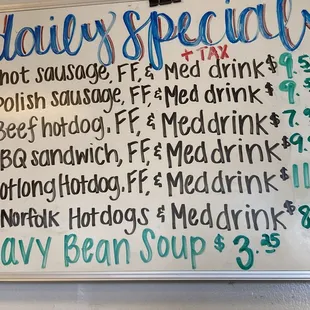 daily special
+ TAX
hot sausage, FF, & Med drink $9.5
Polish sausage, FF, & Med drink $9.
Beef hotdog, FF, & Med drink $7.
BQ sandwich, FF, & Med drink $9.
otlong Hotdog, FF, & Med drink $11
Norfolk Hotdogs & Med drink $8
avy Bean Soup $3.25